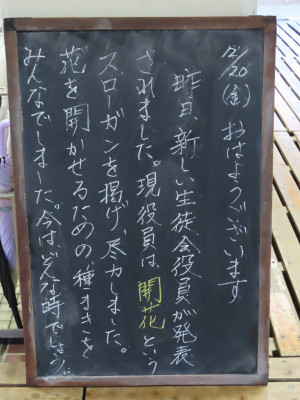 12/20(金) おはようございます
昨日、新しい生徒会役員が発表
されました。現役員は、開花という
スローガンを掲げ、尽力しました。
花を開かせるための種まきを
みんなでしました。今はどんな時でしょう。